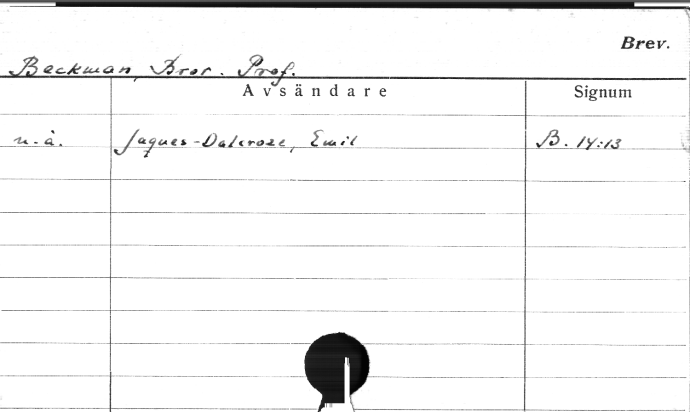 Brev.
Beckman, Bror. Prof.
Avsändare Signum
n.å. Jaques-Dalcroze, Emil B. 14:13